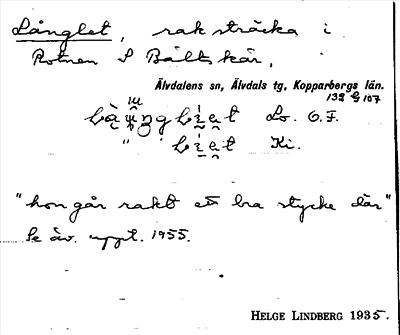 Långlet, rak sträcka i
Rotnen S Båltskär,
Älvdalens sn, Älvdals tg, Kopparbergs län.
132 G 107
Lo. O.F.
" Ki.
"hon går rakt et bra stycke där"
Se äv. uppt. 1955.
HELGE LINDBERG 1935.